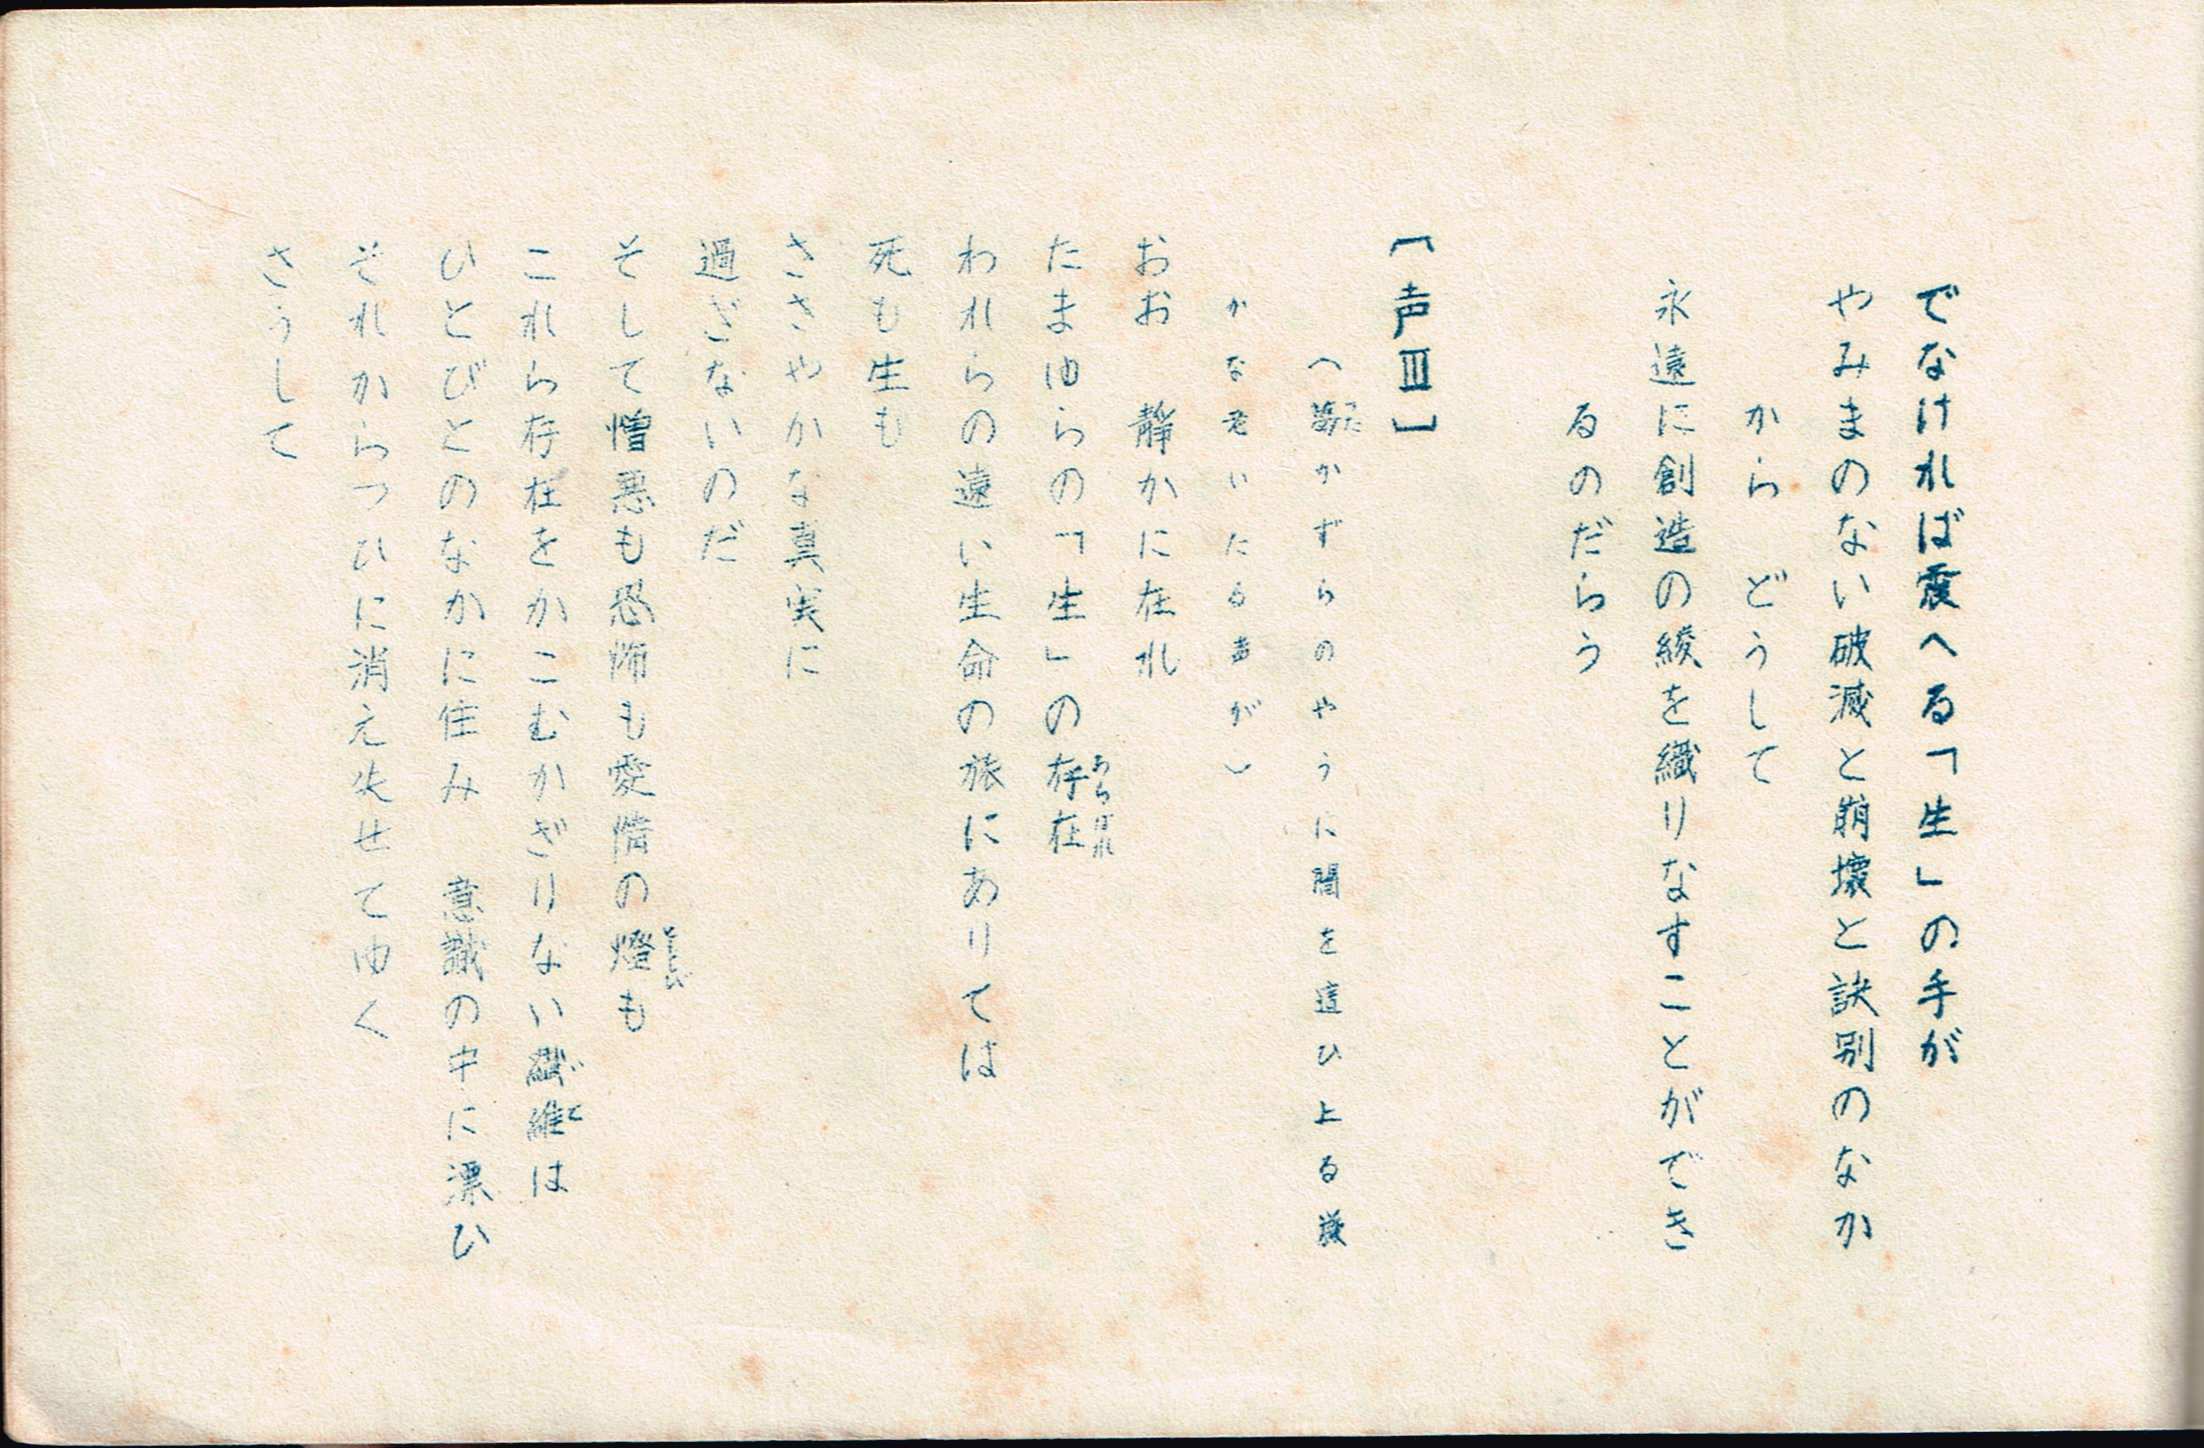 でなければ震へる「生」の手が
やみまのない破滅と崩壊と訣別のなか
から　どうして
永遠に創造の綾を織りなすことができ
るのだらう
〔声Ⅲ〕
かずらのやうに闇を這ひ上る
かな老いたる声が）
おお　靜かに在れ
たまゆらの「生」の存在
われらの遠い生命の旅にありては
死も生も
ささやかな真実に
過ぎないのだ
そして憎悪も恐怖も愛情の燈も
これら存在をかこむかぎりない繊維は
ひとびとのなかに住み　意識の中に漂ひ
それからつひに消え失せてゆく
さうして